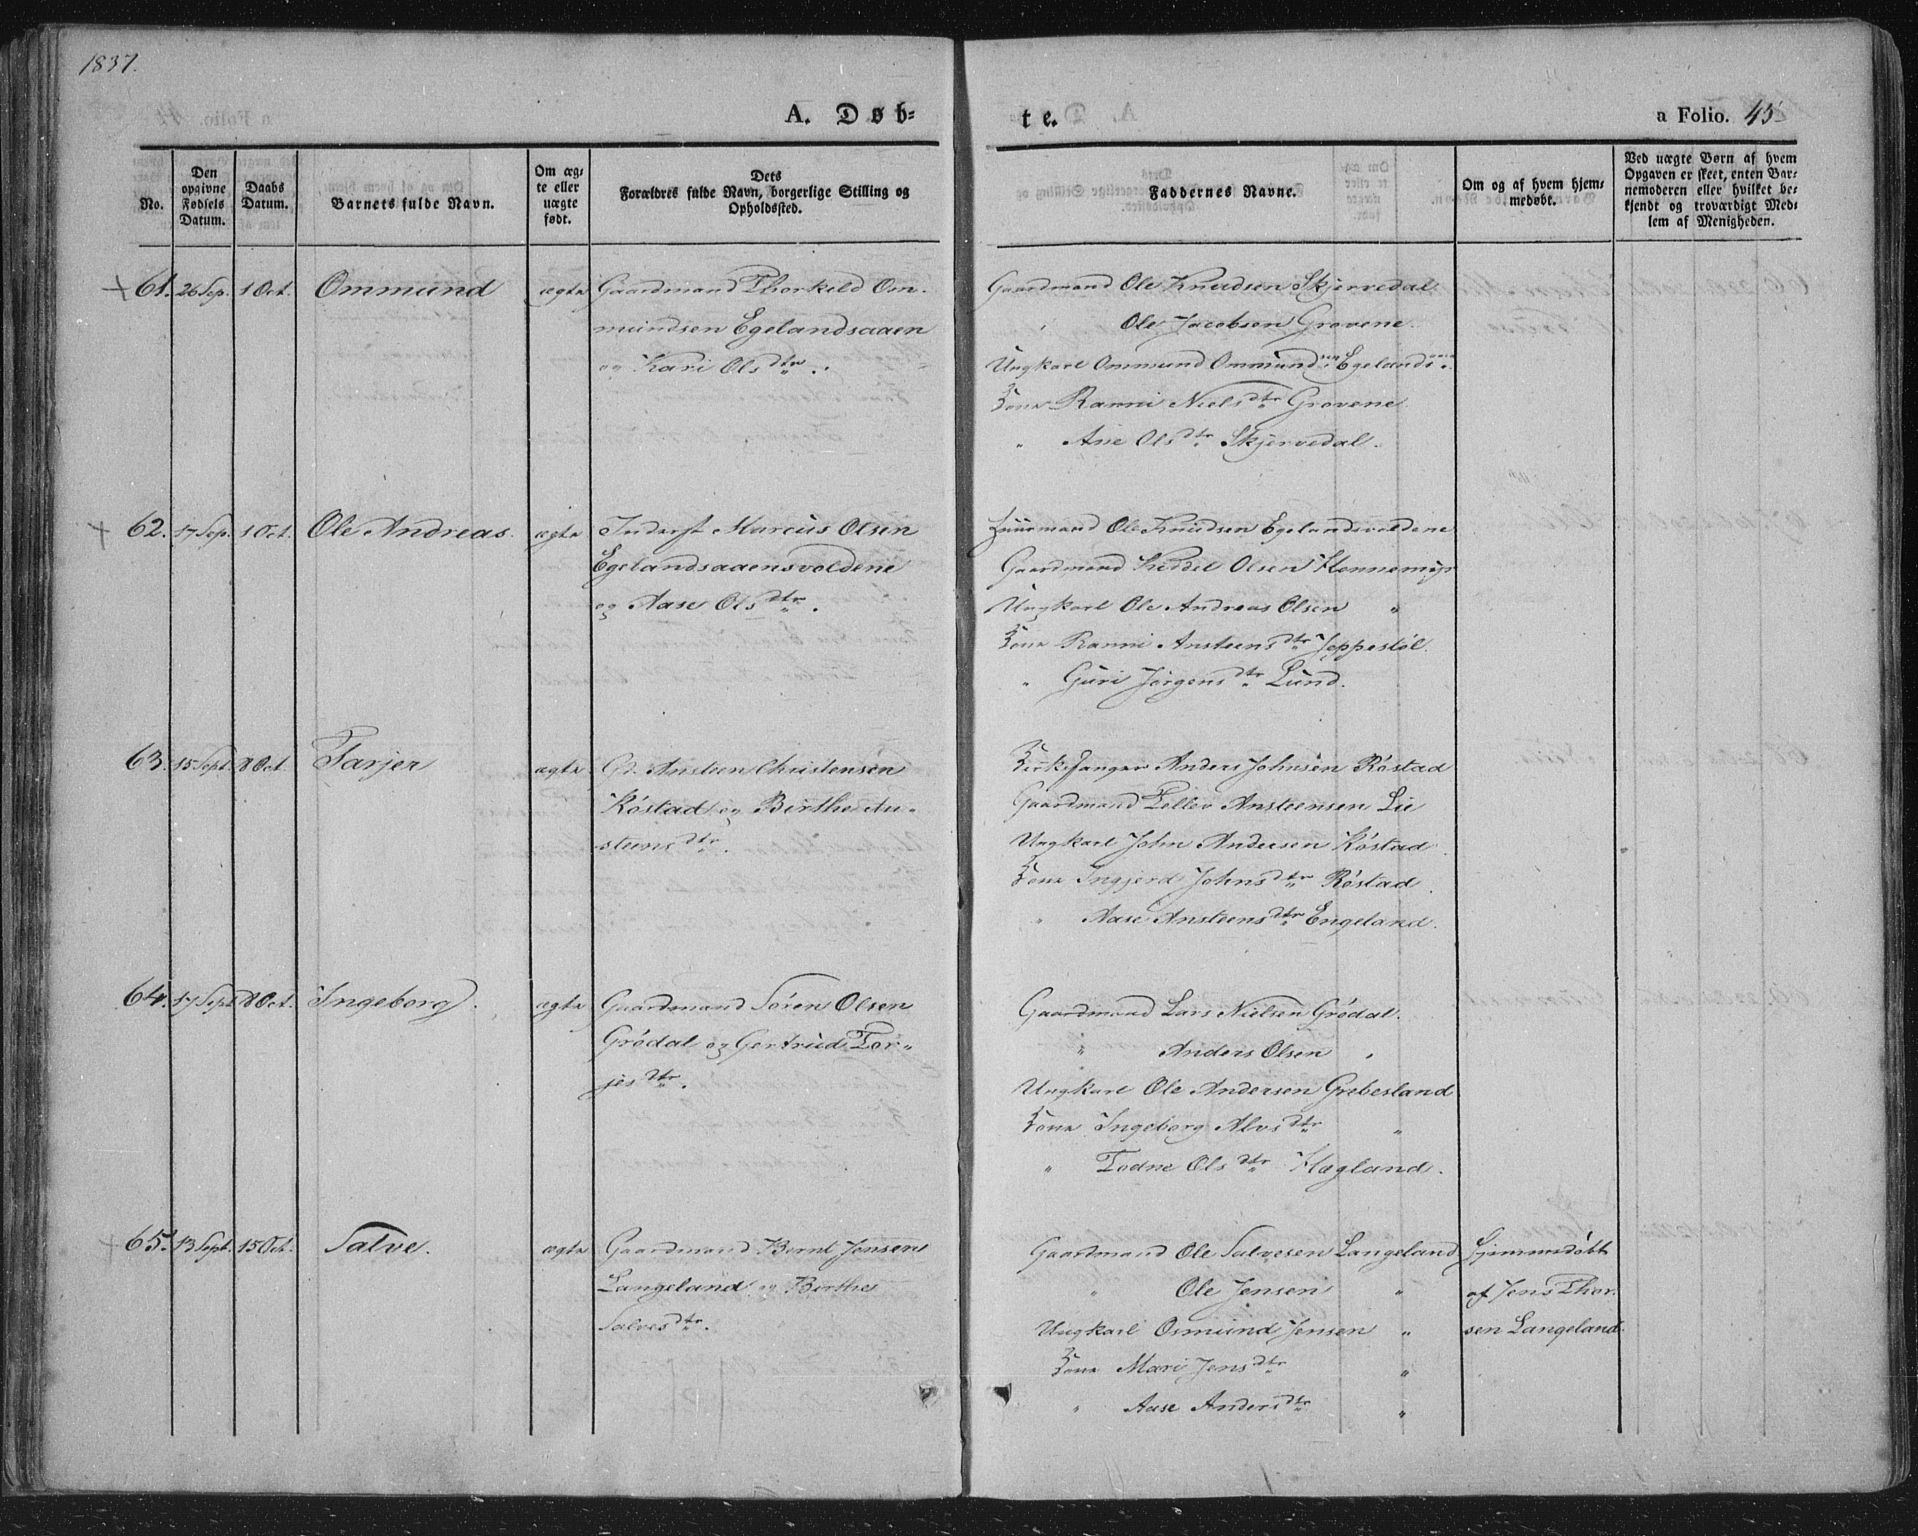 1837.
A. Døb-
te.
a Folio. 45
No.
Den opgivne Fødsels Datum.
Daabs Datum.
Barnets fulde Navn.
Om ægte eller uægte født.
Dets Forældres fulde Navn, borgerlige Stilling og Opholdssted.
Faddernes Navne.
Om og af hvem hjemmedøbt.
Ved uægte Børn af hvem Opgaven er skeet, enten Barnemoderen eller hvilket bekjendt og troværdigt Medlem af Menigheden.
61. 26 Sep. 1 Oct. Ommund ægte Gaardmand Thorkild Om-
mundsen Egelandsaaen
og Kari Olsdtr.
Gaardmand Ole Knudsen Skjervedal
" Ole Jacobsen Grovene.
Ungkarl Ommund Ommundsen Egelands
Kone Ranni Nielsdtr Grovene
" Ane Olsdtr Skjervedal.
62. 17 Sep. 1 Oct. Ole Andreas. ægte Inderst Marcus Olsen
Egelandsaaensvoldene
og Aase Olsdtr.
Huusmand Ole Knudsen Egelandsvoldene
Gaardmand Keddel Olsen Honnemyr
Ungkarl Ole Andreas Olsen "
Kone Ranni Ansteensdtr Jeppestøl.
" Guri Jørgensdtr Lund.
63. 15 Sept. 8 Oct. Tarjer ægte Gd. Ansteen Christensen
Røstad og Birthe An-
steensdtr.
Kirkesanger Anders Johnsen Røstad
Gaardmand Tellev Ansteensen Lie
Ungkarl John Andersen Røstad
Kone Ingjerd Johnsdtr Røstad.
" Aase Ansteensdtr Engeland.
64. 17 Sept 8 Oct. Ingeborg. ægte Gaardmand Søren Olsen
Grødal og Gertrud Tor-
jesdtr.
Gaardmand Lars Nielsen Grødal.
" Anders Olsen "
Ungkarl Ole Andersen Grebesland
Kone Ingeborg Alvsdtr "
" Todne Olsdtr Hægland.
65. 13 Sept. 15 Oct. Salve. ægte Gaardmand Bernt Jensen
Langeland og Birthe
Salvesdtr.
Gaardmand Ole Salvesen Langeland
" Ole Jensen "
Ungkarl Osmund Jensen "
Kone Mari Jensdtr "
" Aase Andersdtr "
Hjemmedøbt
af Jens Thor-
sen Langeland.